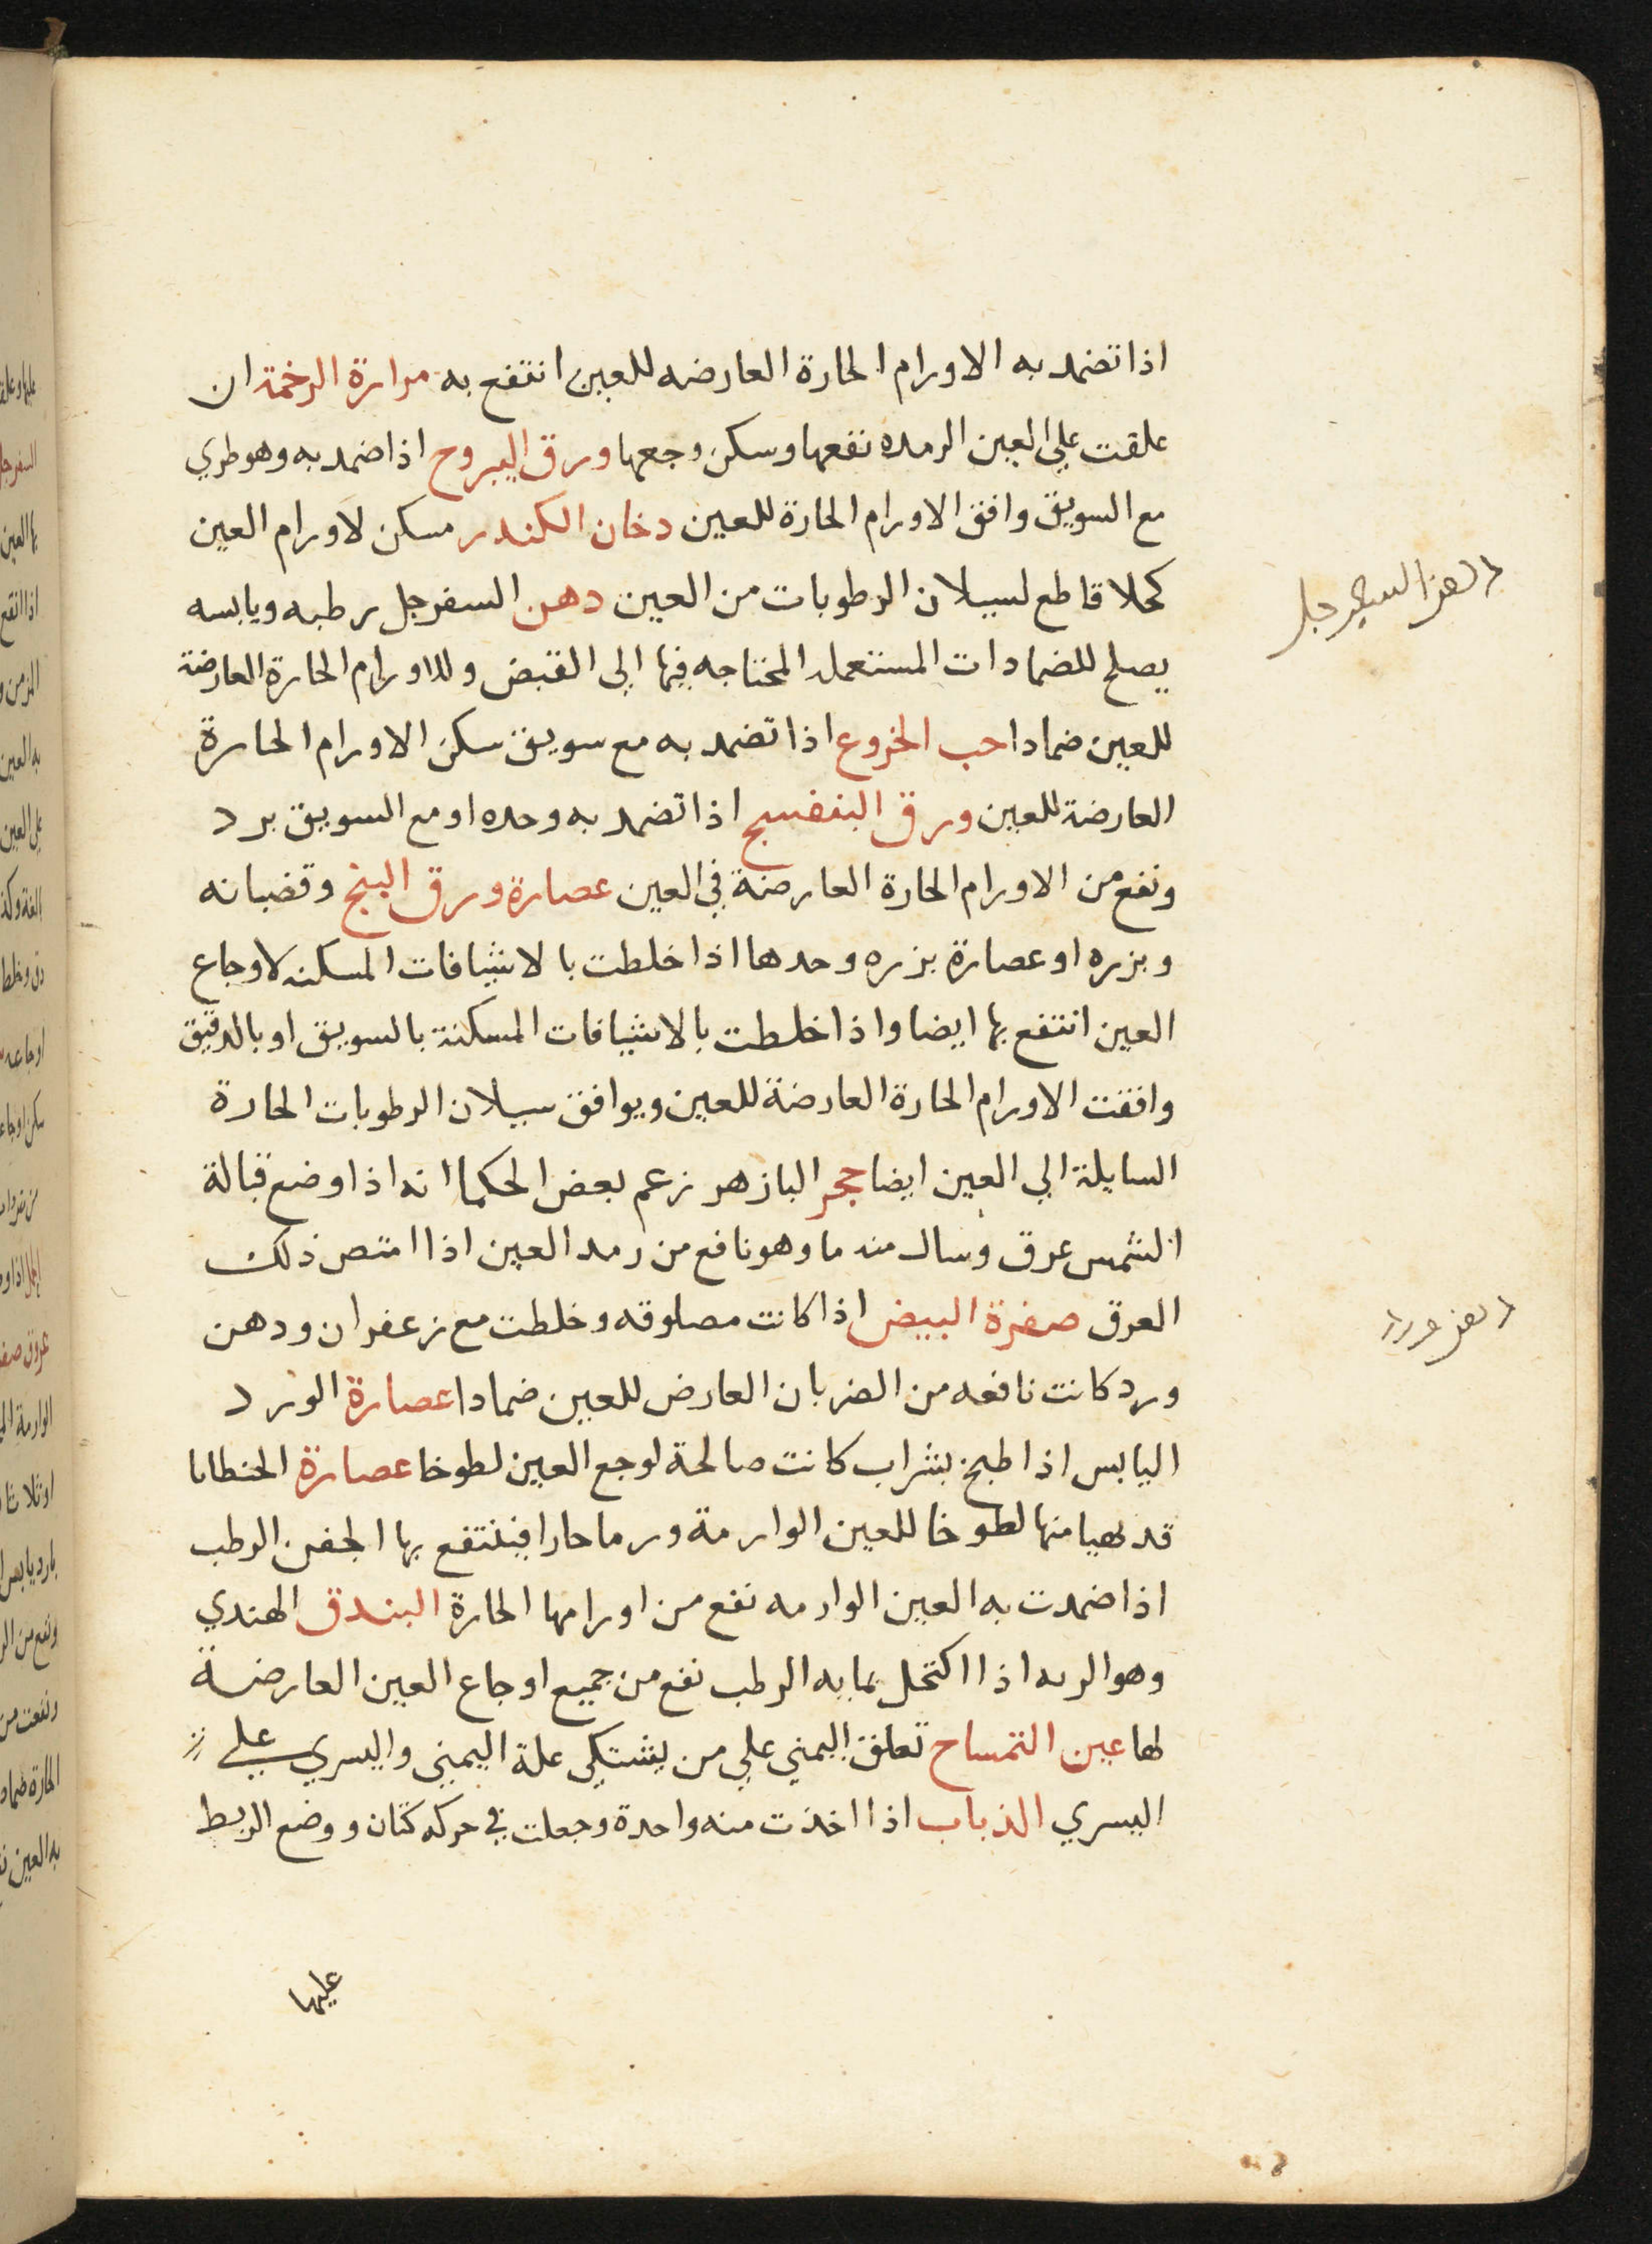 اذا تضمد به الاورام الحارة العارضه للعين انتفع به مرارة الرخمة ان
علقت علي العين الرمده نفعها وسكن وجعها ورق اليبروح اذا ضمد به وهو طري
مع السويق وافق الاورام الحارة للعين دخان الكندر مسكن لاورام العين
كحلا قاطع لسيلان الرطوبات من العين دهن السفرجل رطبه ويابسه
يصلح للضمادات المستعمله المحتاجه فيها الي القبض وللاورام الحارة العارضة
للعين ضمادا حب الخروع اذا تضمد به مع سويق سكن الاورام الحارة
العارضة للعين ورق البنفسج اذا تضمد به وحده او مع السويق برد
ونفع من الاورام الحارة العارضة في العين عصارة ورق البنج وقضبانه
وبزره او عصارة بزره وحدها اذا خلطت بالاشيافات المسكنه لاوجاع
العين انتفع بها ايضا واذا خلطت بالاشيافات المسكنة بالسويق او بالدقيق
وافقت الاورام الحارة العارضة للعين ويوافق سيلان الرطوبات الحارة
السايلة الي العين ايضا حجر البازهر زعم بعض الحكما انه اذا وضع قبالة
الشمس عرق وسال منه ما وهو نافع من رمد العين اذا امتص ذلك
العرق صفرة البيض اذا كانت مصلوقه وخلطت مع زعفران ودهن
ورد كانت نافعه من الضربان العارض للعين ضمادا عصارة الورد
اليابس اذا طبخ بشراب كانت صالحة لوجع العين لطوخا عصارة الحنطانا
قد يهيا منها لطوخا للعين الوارمة ورما حارا فينتفع بها الجفن الرطب
اذا ضمدت به العين الوارمه نفع من اورامها الحارة البندق الهندي
وهو الرته اذا اكتحل بمايه الرطب نفع من جميع اوجاع العين العارضة
لها عين التمساح تعلق اليمني علي من يشتكي علة اليمني واليسري علي
اليسري الذباب اذا اخذت منه واحدة وجعلت في حركه كتان ووضع الربط
عليها